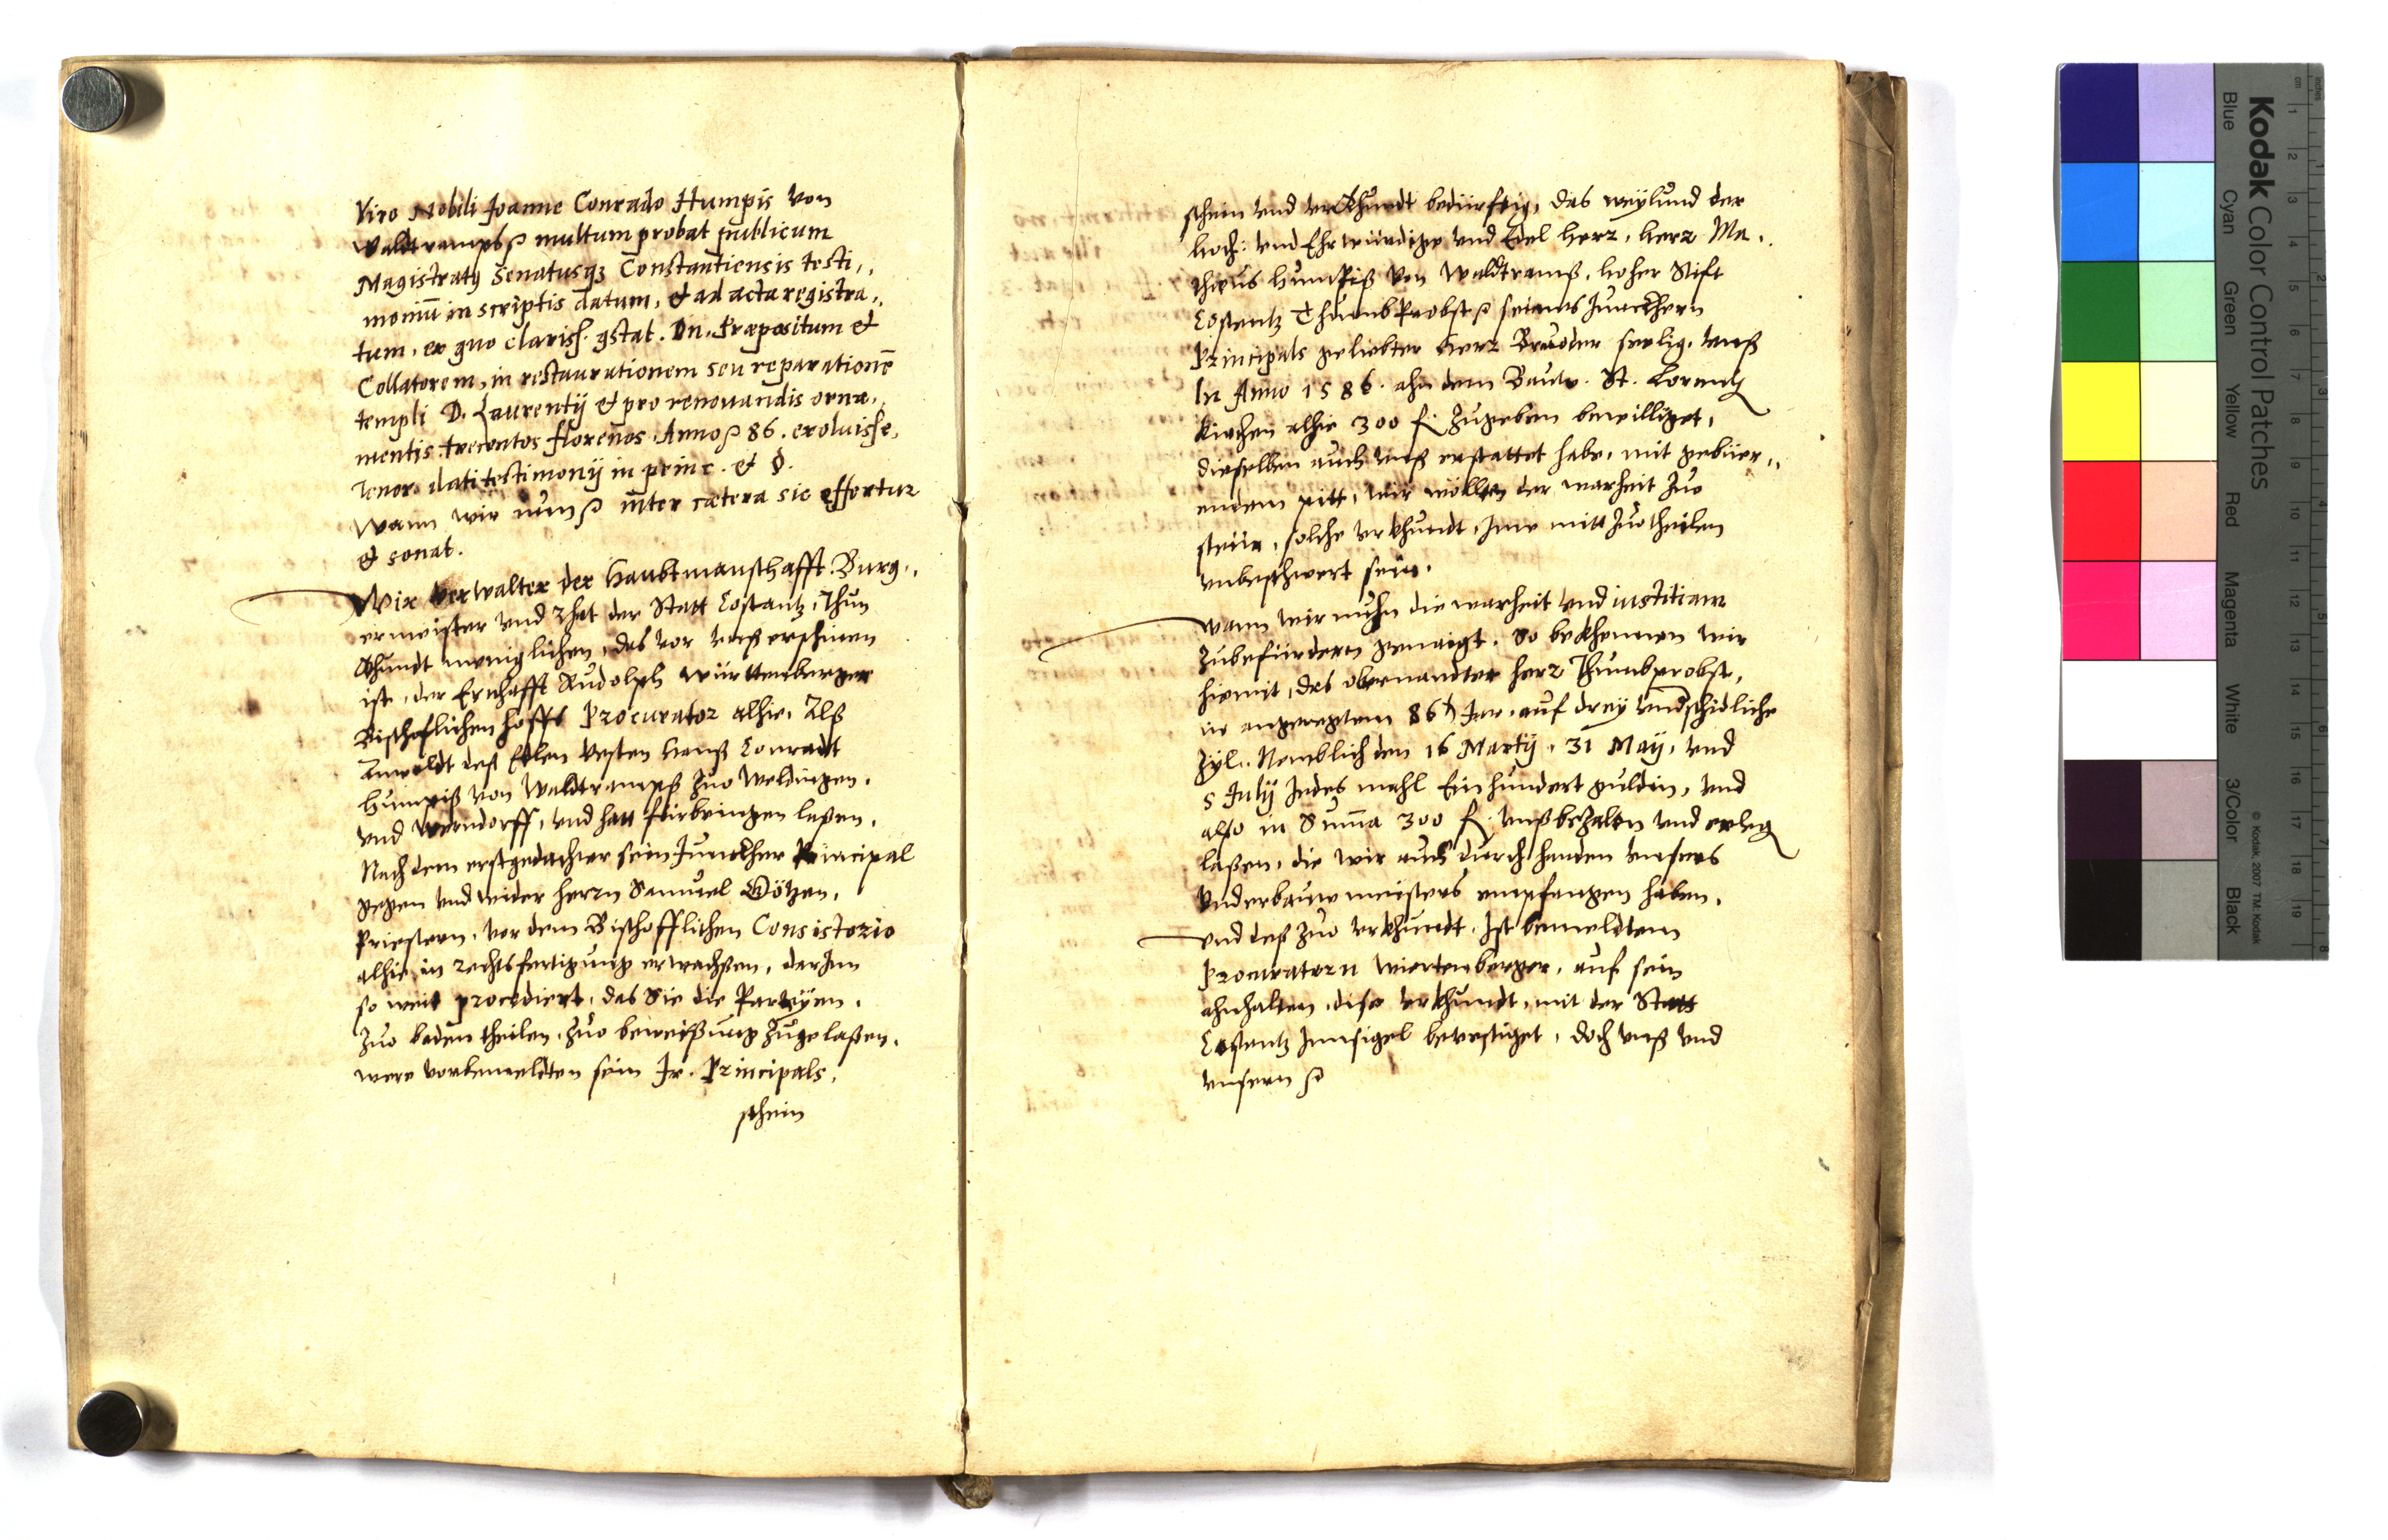 Viro Nobili Joanne Conrado Humpis von
Waldtramps &c multum probat publicum
Magistratus Senatusq; Constantiensis testi,,
moniū in scriptis datum, et ad acta registra,,
tum, ex quo clariss. constat. Dn. Præpositum et
Collatorem, in restaurationem seu reparationē
templi D. Laurentij et pro renouandis orna,,
mentis trecentos florenos Anno &c 86. exoluisse,
Tenor dati testimonij in princ. et §.
Wann wir nun &c inter cætera sic effertur
et sonat.
Wir Verwalter der Haubtmanschafft. Burg,,
ermeister vnd Rhat der Statt Costantz, Thun
khundt meniglichen, das vor vnß erschinen
ist, der Ernhafft Rudolph Württenberger
Bischoflichen hoffs Procurator alhie. Alß
Anwaldt deß Edlen Vesten Hanß Conradt
Humpiß von Waldtrampß zuo Weldingen.
vnd Werndorff, vnd hatt fürbringen laßen.
Nach dem erstgedachter sein Junckher Principal
gegen vnd wider herrn Samuel Götzen,
Priestern, vor dem Bischofflichen Consistorio
alhie in rechtsfertigung erwachßen, darinn
so weit procediert, das Sie die Parteyen.
zuo beden theilen, zuo beweisung zugelaßen.
were vorbemeldten sein Jr. Principals,
schein
schein vnd vrkhundt bedürftig, das weylund der
hoch: vnd Ehrwürdige vnd Edel herr, herr Ma,,
theus Humpiß von Waldtramß, hoher Stift
Costentz Thumb Probst &c seines Junckhern
Principals geliebter herr Bruoder seelig. vnß
In Anno 1586. ahn dem Bauw. St. Lorentz
kirchen alhie 300 fl. zugeben bewilliget,
dieselben auch vnß erstattet habe, mit gebüer,,
endem pitt, wir wöllten der warheit zuo
steür, solche vrkhundt, Jme mitt zuotheilen
vnbeschwert sein.
Wann wir nuhn die warheit vnd iustitiam
zubefürdern genaigt. So bekhennen wir
hiemit, das obernandter herr Thumbprobst,
in angeregtem 86t Jar, auf drey vndschidliche
Zyl. Nemblich den 16 Martij, 31 Maij, vnd
5 Julij Jedes mahl Ein hundert gulden, vnd
also in Suma 300 fl. vnß bezalen vnd erleg
laßen, die wir auch durch handen vnsers
Vnderbauwmeisters empfangen haben.
vnd deß zuo vrkhundt. Ist bemeldtem
Procuratorn Wiertenberger, auf sein
ahnhalten, dise vrkhundt, mit der Statt
Costentz Jnnsigel bevestiget, doch vnß vnd
vnsern &c